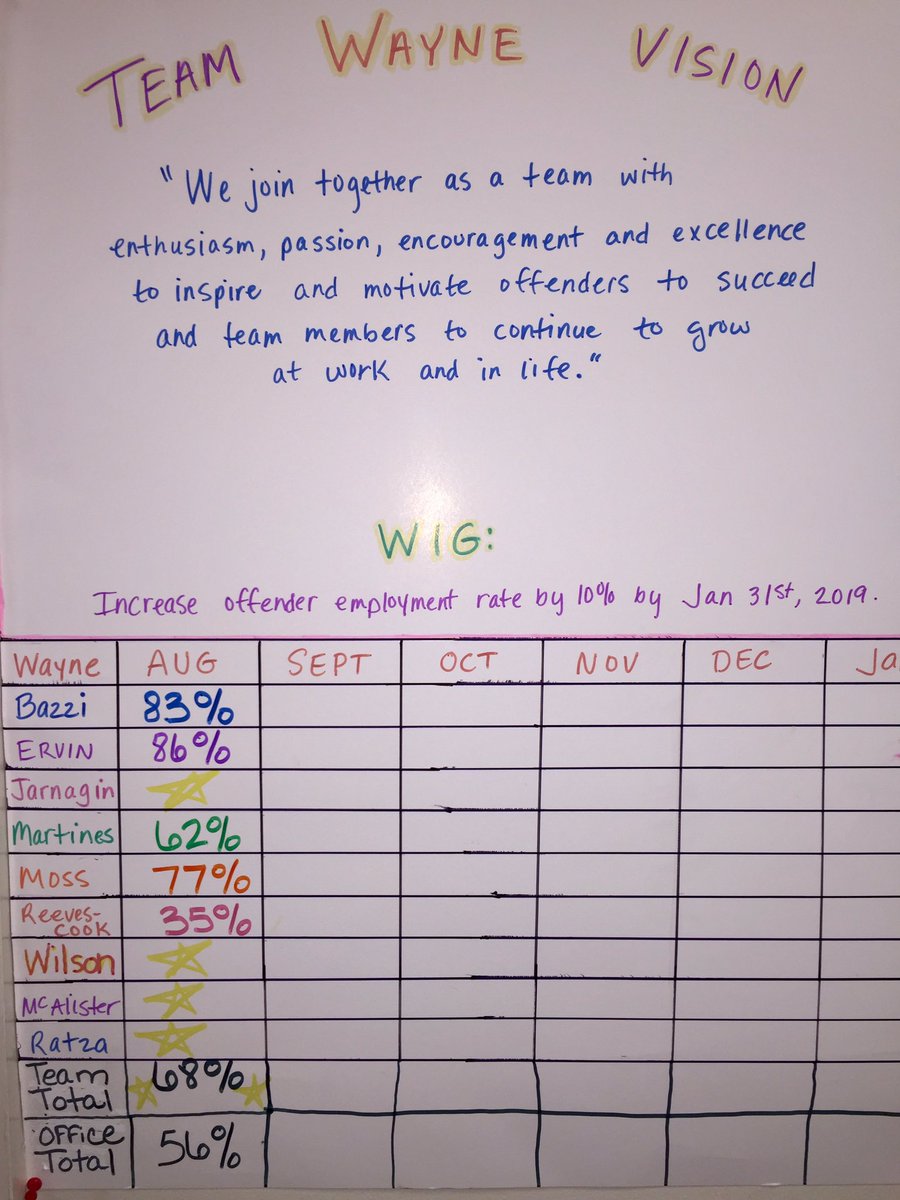 TEAM WAYNE VISION
"We join together as a team with
enthusiasm, passion, encouragement and excellence
to inspire and motivate offenders to succeed
and team members to continue to grow
at work and in life."
WIG:
Increase offender employment rate by 10% by Jan 31st, 2019.
Wayne AUG SEPT OCT NOV DEC Ja
Bazzi 83%
ERVIN 86%
Jarnagin
Martines 62%
MOSS 77%
Reeves-
COOK 35%
Wilson
McAlister
Ratza
Team
Total 68%
OFFice
Total 56%